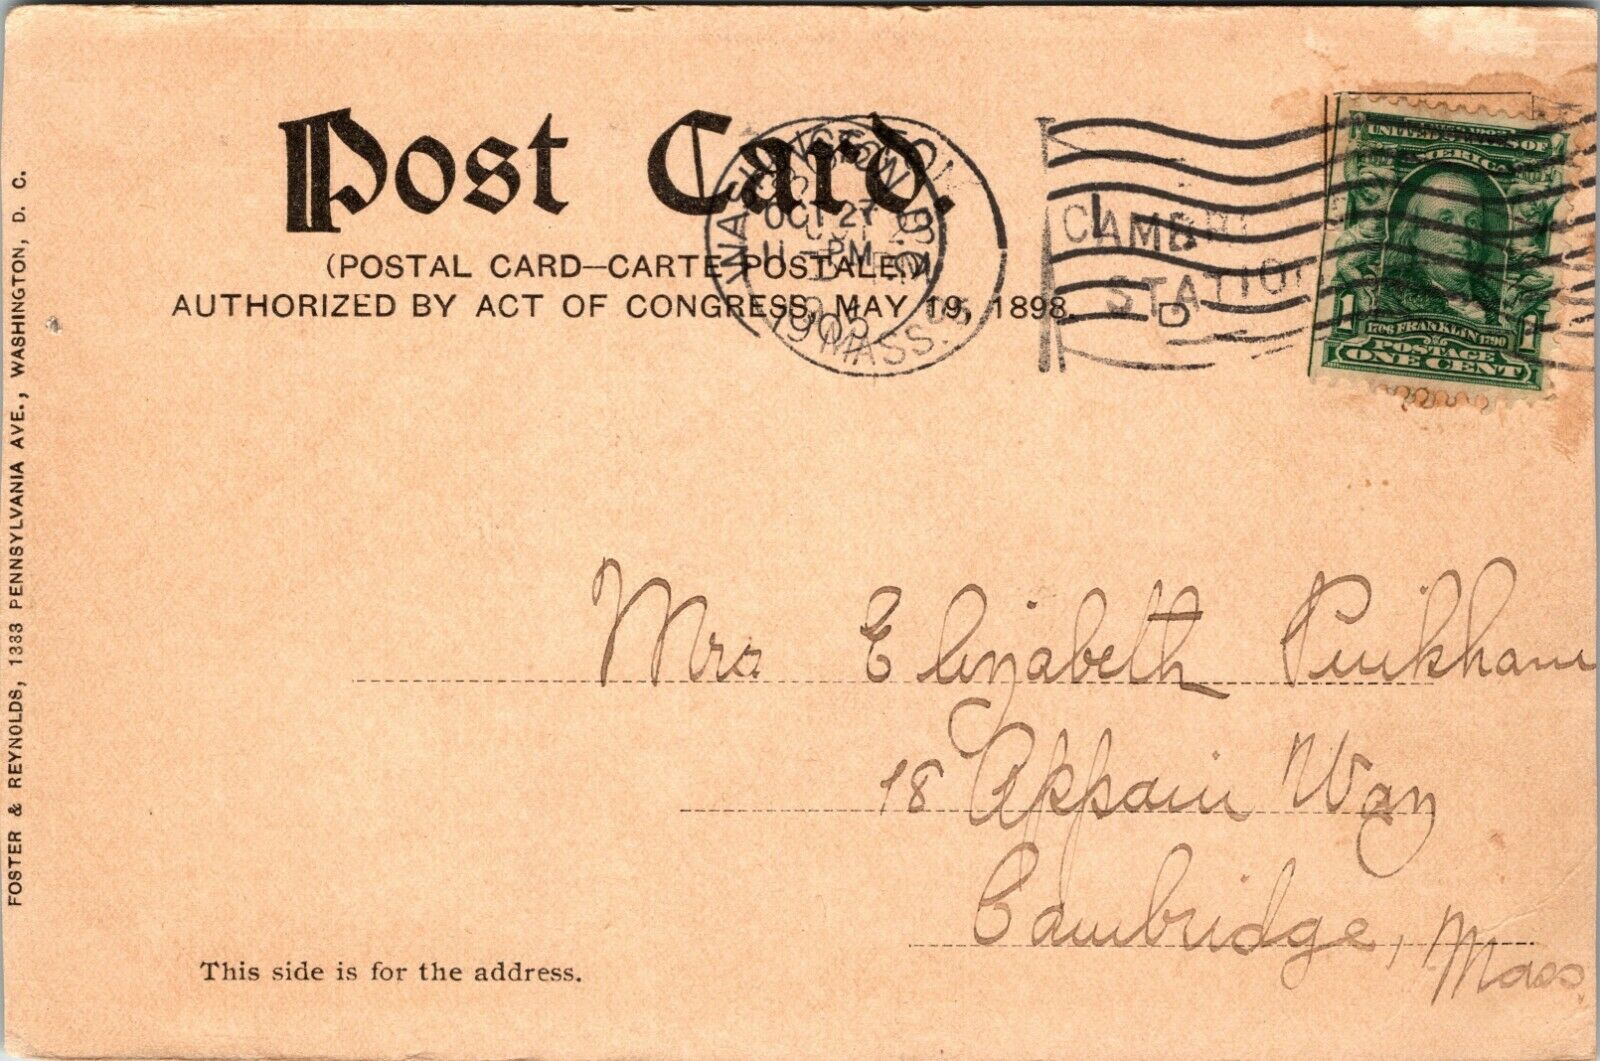 Post Card.
(POSTAL CARD—CARTE POSTALE.)
AUTHORIZED BY ACT OF CONGRESS, MAY 19, 1898.
WASHINGTON, D.C.
OCT 27
11-PM
MASS.
CAMBRI
STATION
UNITED STATES OF
AMERICA
1 1706 FRANKLIN 1790 1
POSTAGE
ONE CENT
Mrs Elizabeth Pinkham
18 Appain Way
Cambridge, Mass.
This side is for the address.
FOSTER & REYNOLDS, 1333 PENNSYLVANIA AVE., WASHINGTON, D. C.